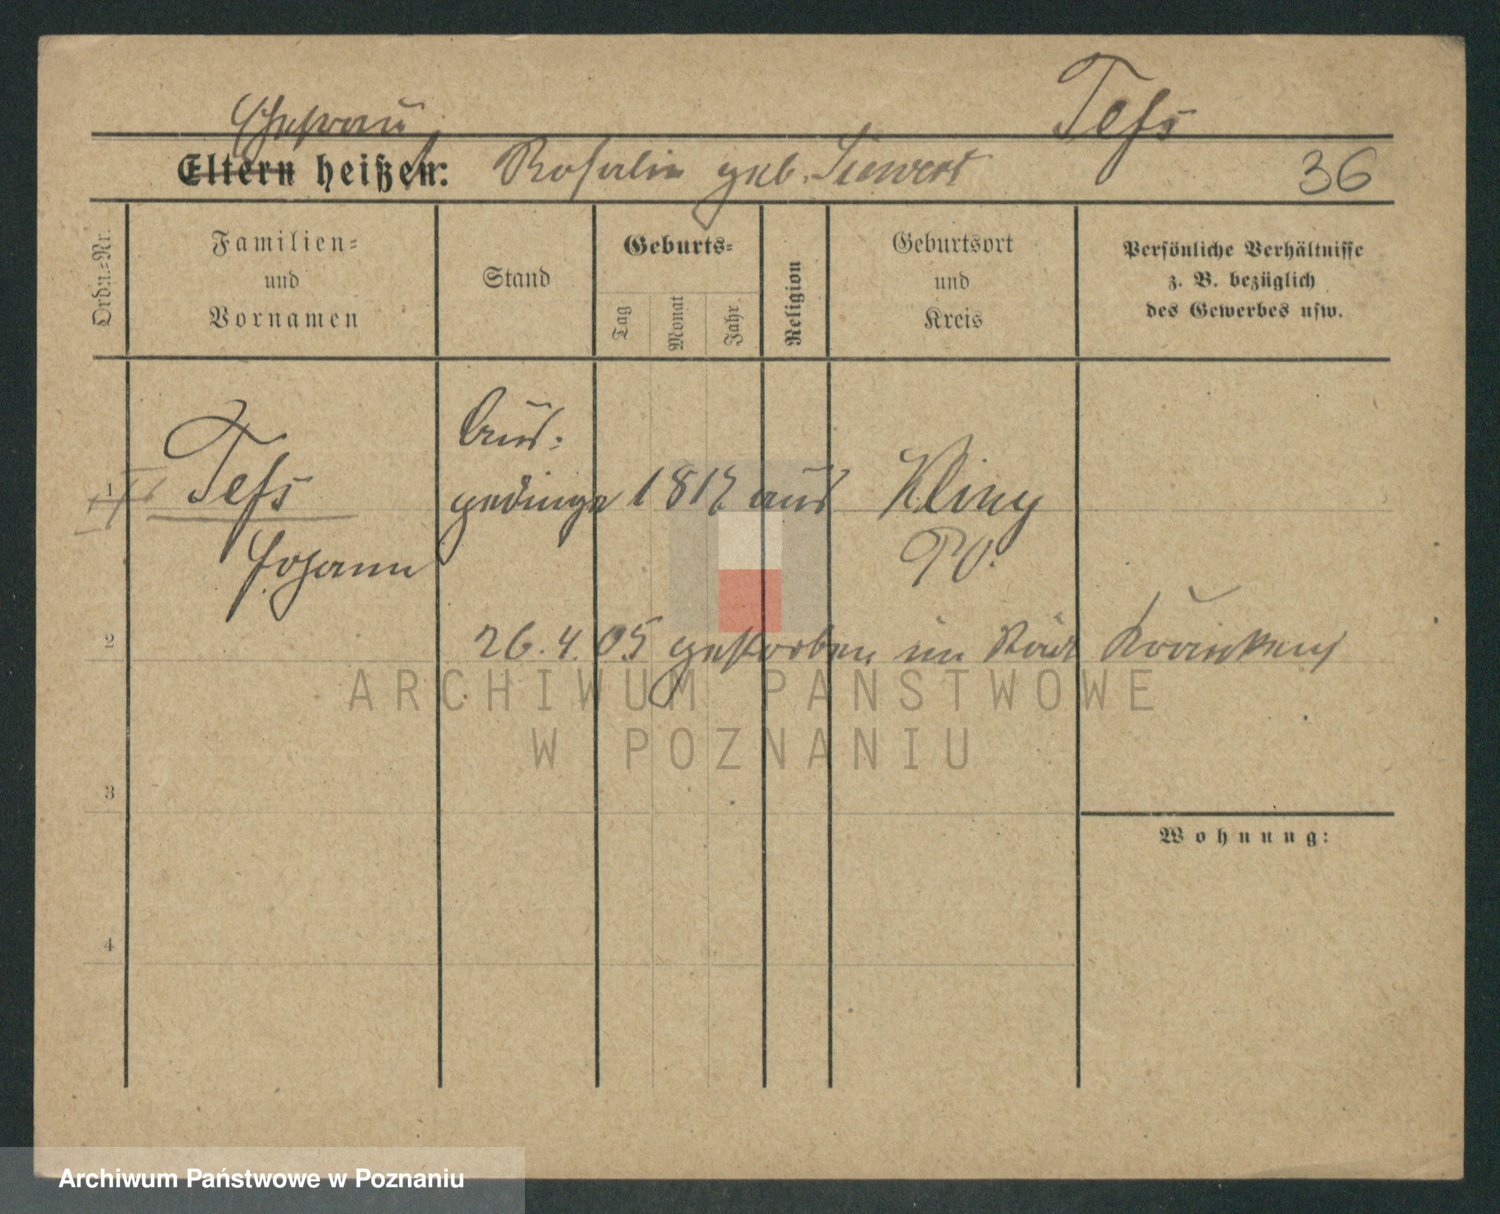 Tess
Ehefrau
Eltern heißen: Rosalie geb. Siewert 36
Ordn.=Nr.
Familien=
und
Vornamen
Stand
Geburts=
Tag
Monat
Jahr
Religion
Geburtsort
und
Kreis
Persönliche Verhältnisse
z. B. bezüglich
des Gewerbes usw.
1 Tess
Johann
Aus-
gedinge 1817 aus Kliny
PO.
2 26.4.05 gestorben im
3
4
Wohnung:
ARCHIWUM PAŃSTWOWE
W POZNANIU
Archiwum Państwowe w Poznaniu